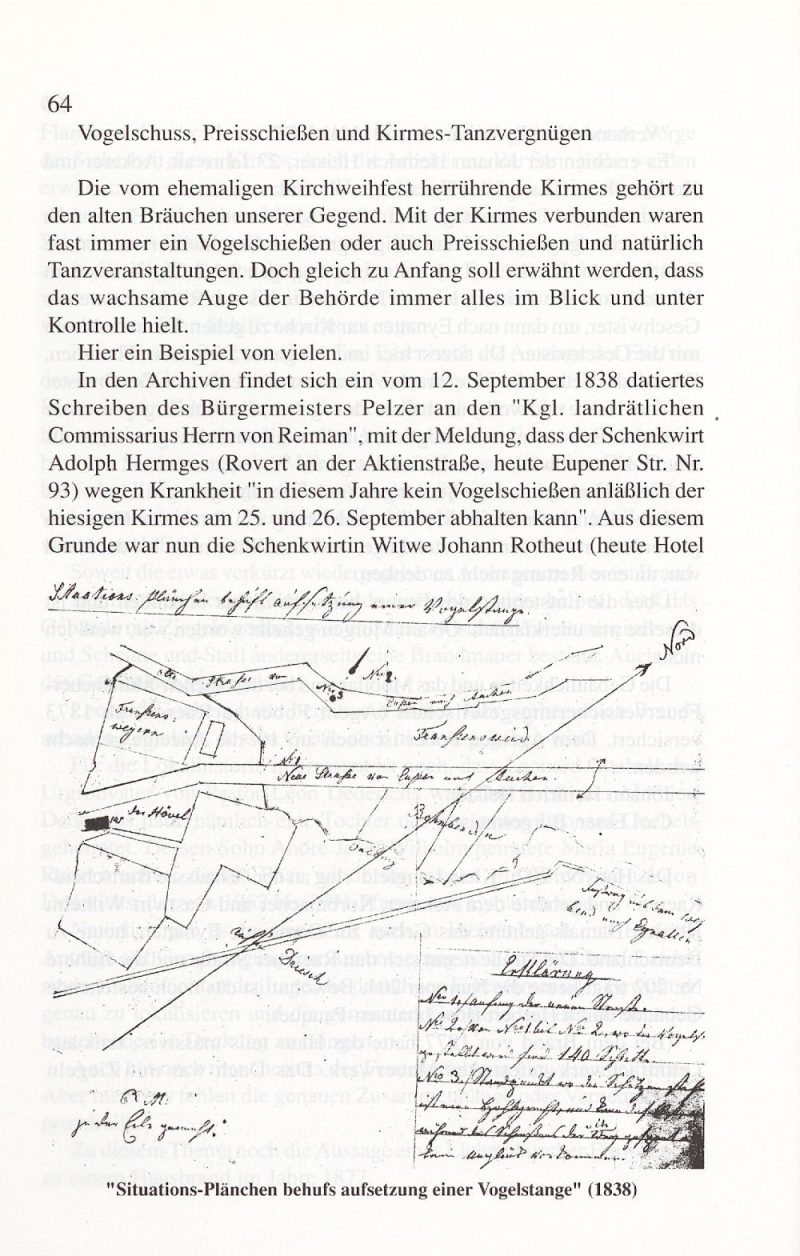 64
Vogelschuss, Preisschießen und Kirmes-Tanzvergnügen
Die vom ehemaligen Kirchweihfest herrührende Kirmes gehört zu
den alten Bräuchen unserer Gegend. Mit der Kirmes verbunden waren
fast immer ein Vogelschießen oder auch Preisschießen und natürlich
Tanzveranstaltungen. Doch gleich zu Anfang soll erwähnt werden, dass
das wachsame Auge der Behörde immer alles im Blick und unter
Kontrolle hielt.
Hier ein Beispiel von vielen.
In den Archiven findet sich ein vom 12. September 1838 datiertes
Schreiben des Bürgermeisters Pelzer an den "Kgl. landrätlichen
Commissarius Herrn von Reiman", mit der Meldung, dass der Schenkwirt
Adolph Hermges (Rovert an der Aktienstraße, heute Eupener Str. Nr.
93) wegen Krankheit "in diesem Jahre kein Vogelschießen anläßlich der
hiesigen Kirmes am 25. und 26. September abhalten kann". Aus diesem
Grunde war nun die Schenkwirtin Witwe Johann Rotheut (heute Hotel
Situations-Plänchen behufs aufsetzung einer Vogelstange.
Nord
alte Strasse von
No 3
No 2
Eupen nach Aachen
No 1
Neue Strasse von Eupen nach Aachen.
der Hövel
Erklärung
"Situations-Plänchen behufs aufsetzung einer Vogelstange" (1838)